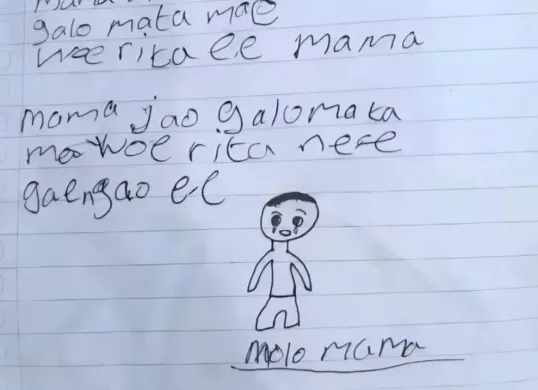 galo mata mae
woe rita ee mama
mama jao galo mata
woe rita nee
gaengao ee
molo mama